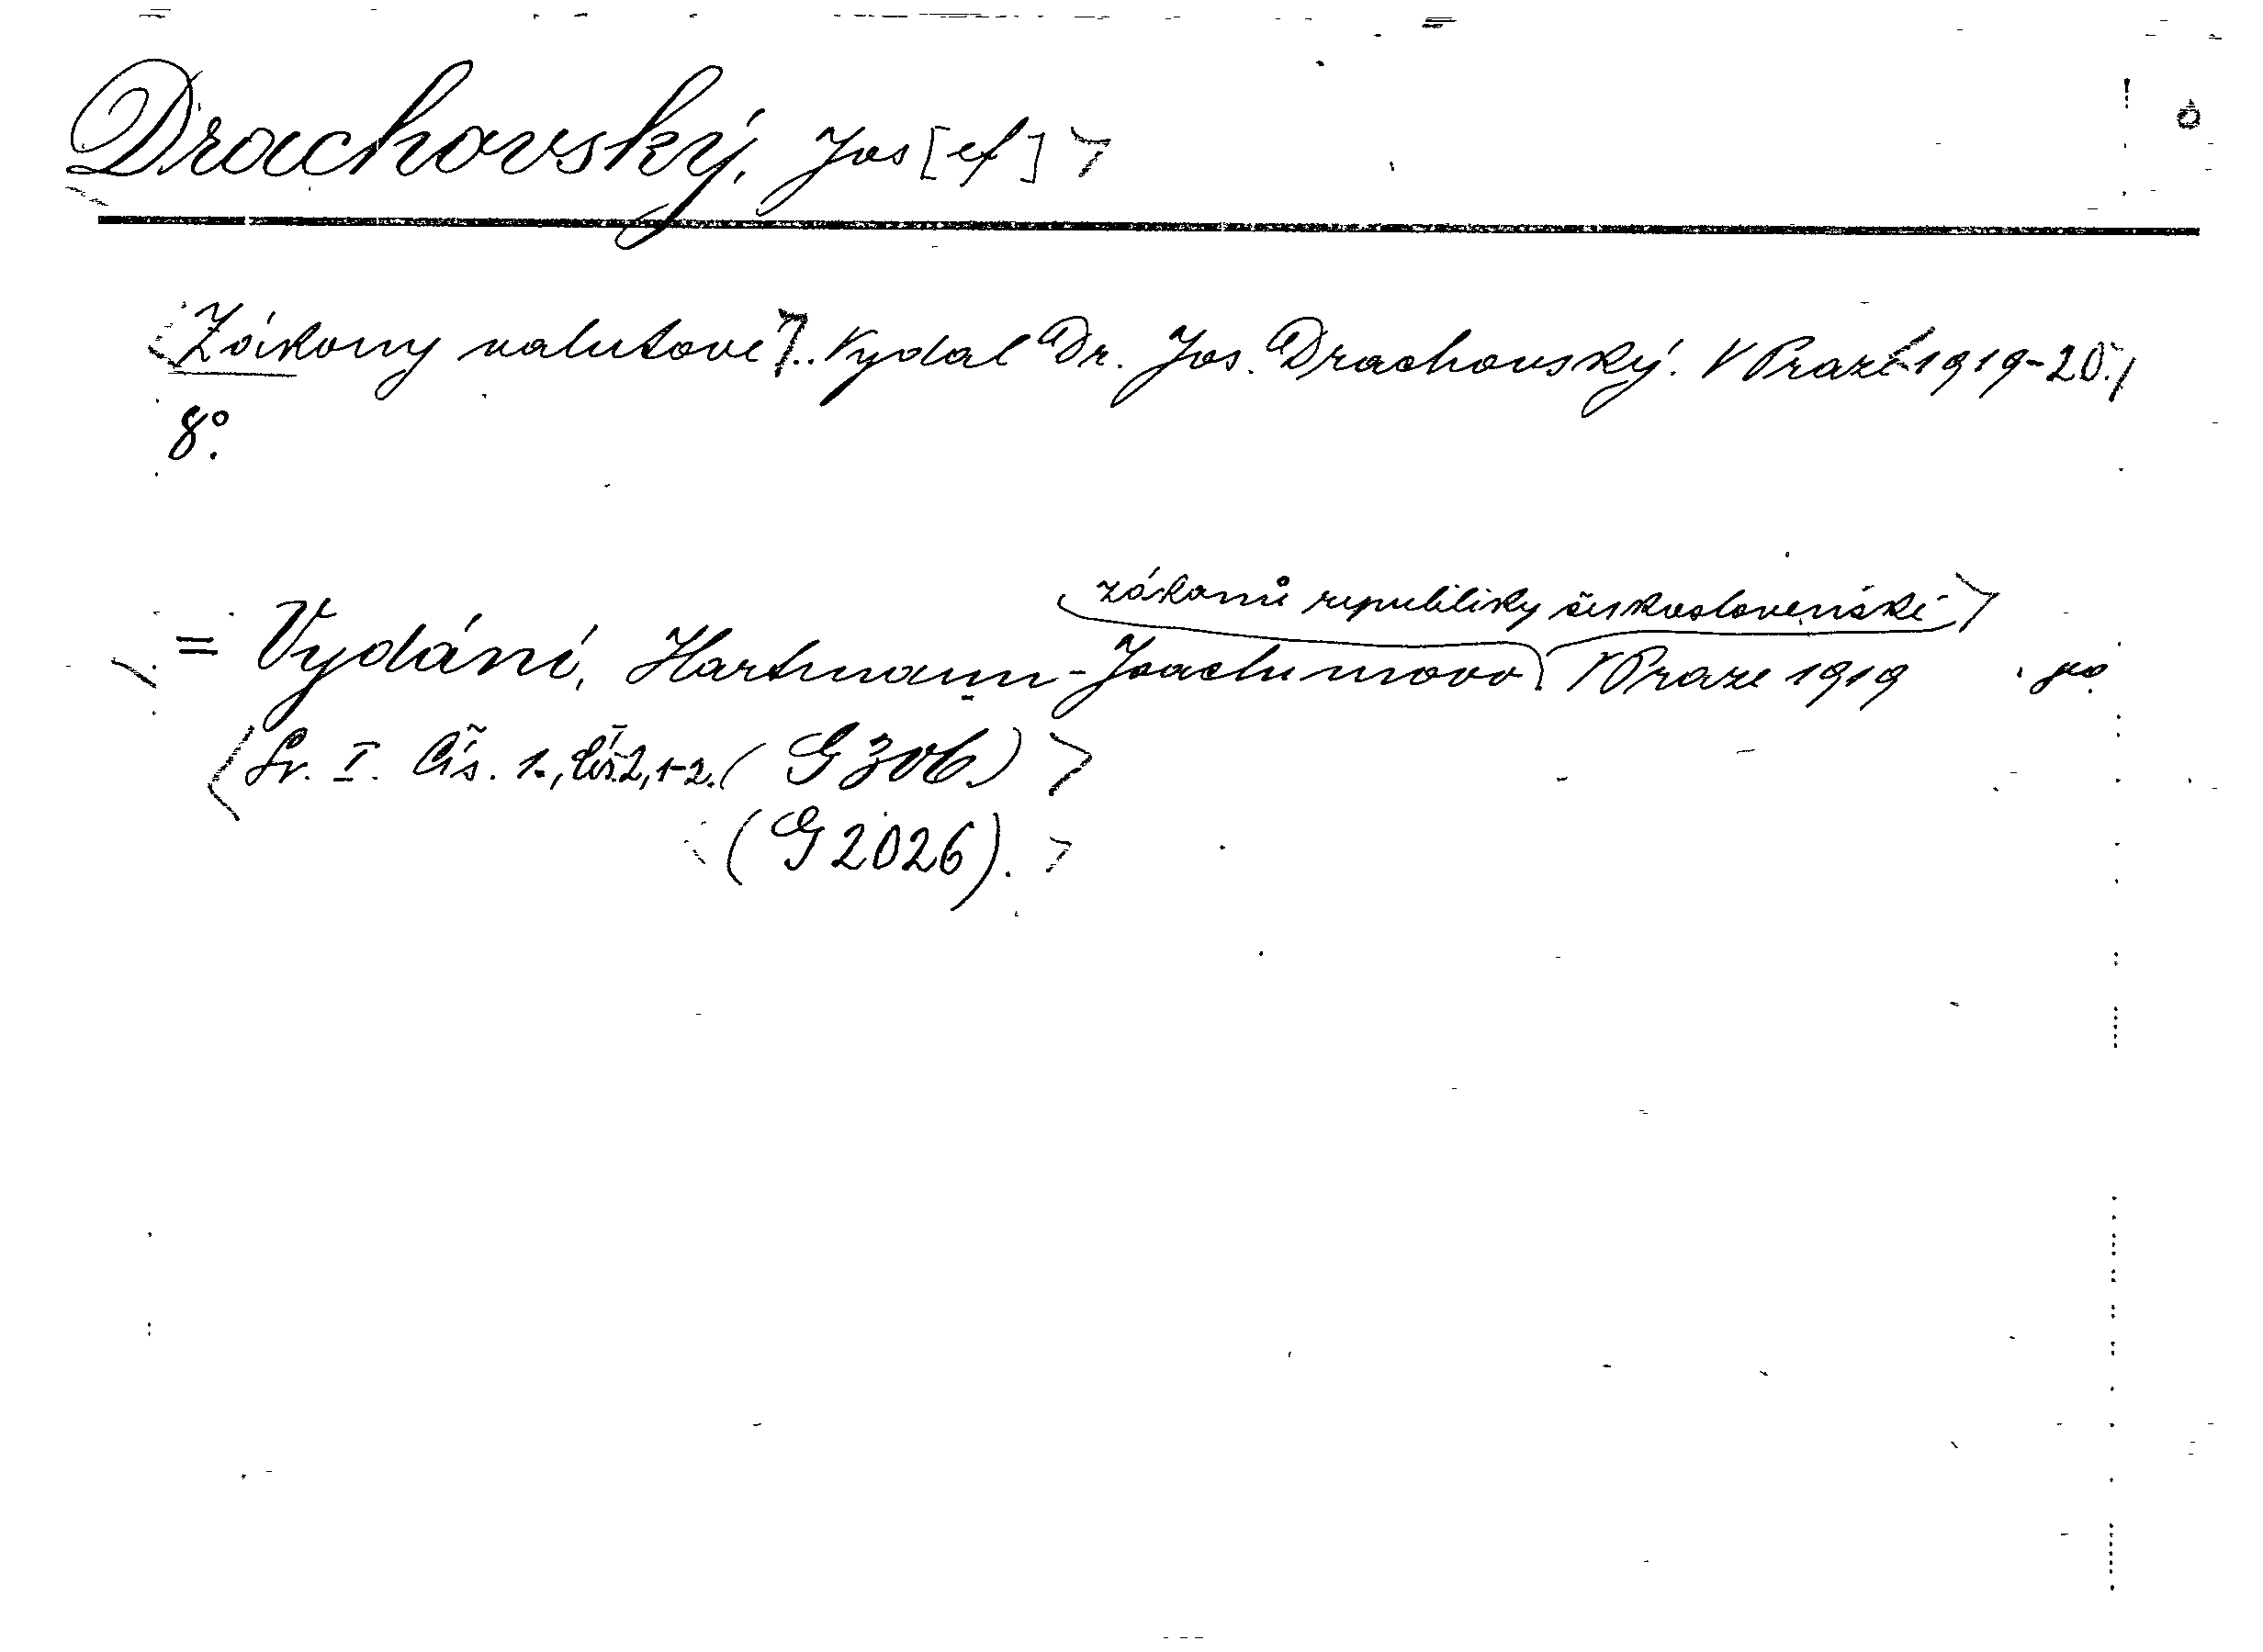 Drachovský, Jos[ef]
Zákony valutové. Vydal Dr. Jos. Drachovský. V Praze 1919-20.
8°.
zákonů republiky československé
= Vydání, Hartmann-Joachimovo. V Praze 1919
Sv. I. Čís. 1., Čís. 2, 1-2. (G 306.)
(G 2026).